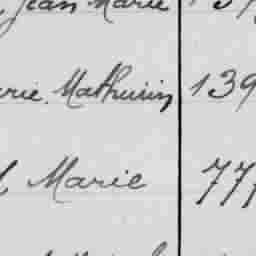 Jean Marie 139
rie Mathurin 139
Marie 777